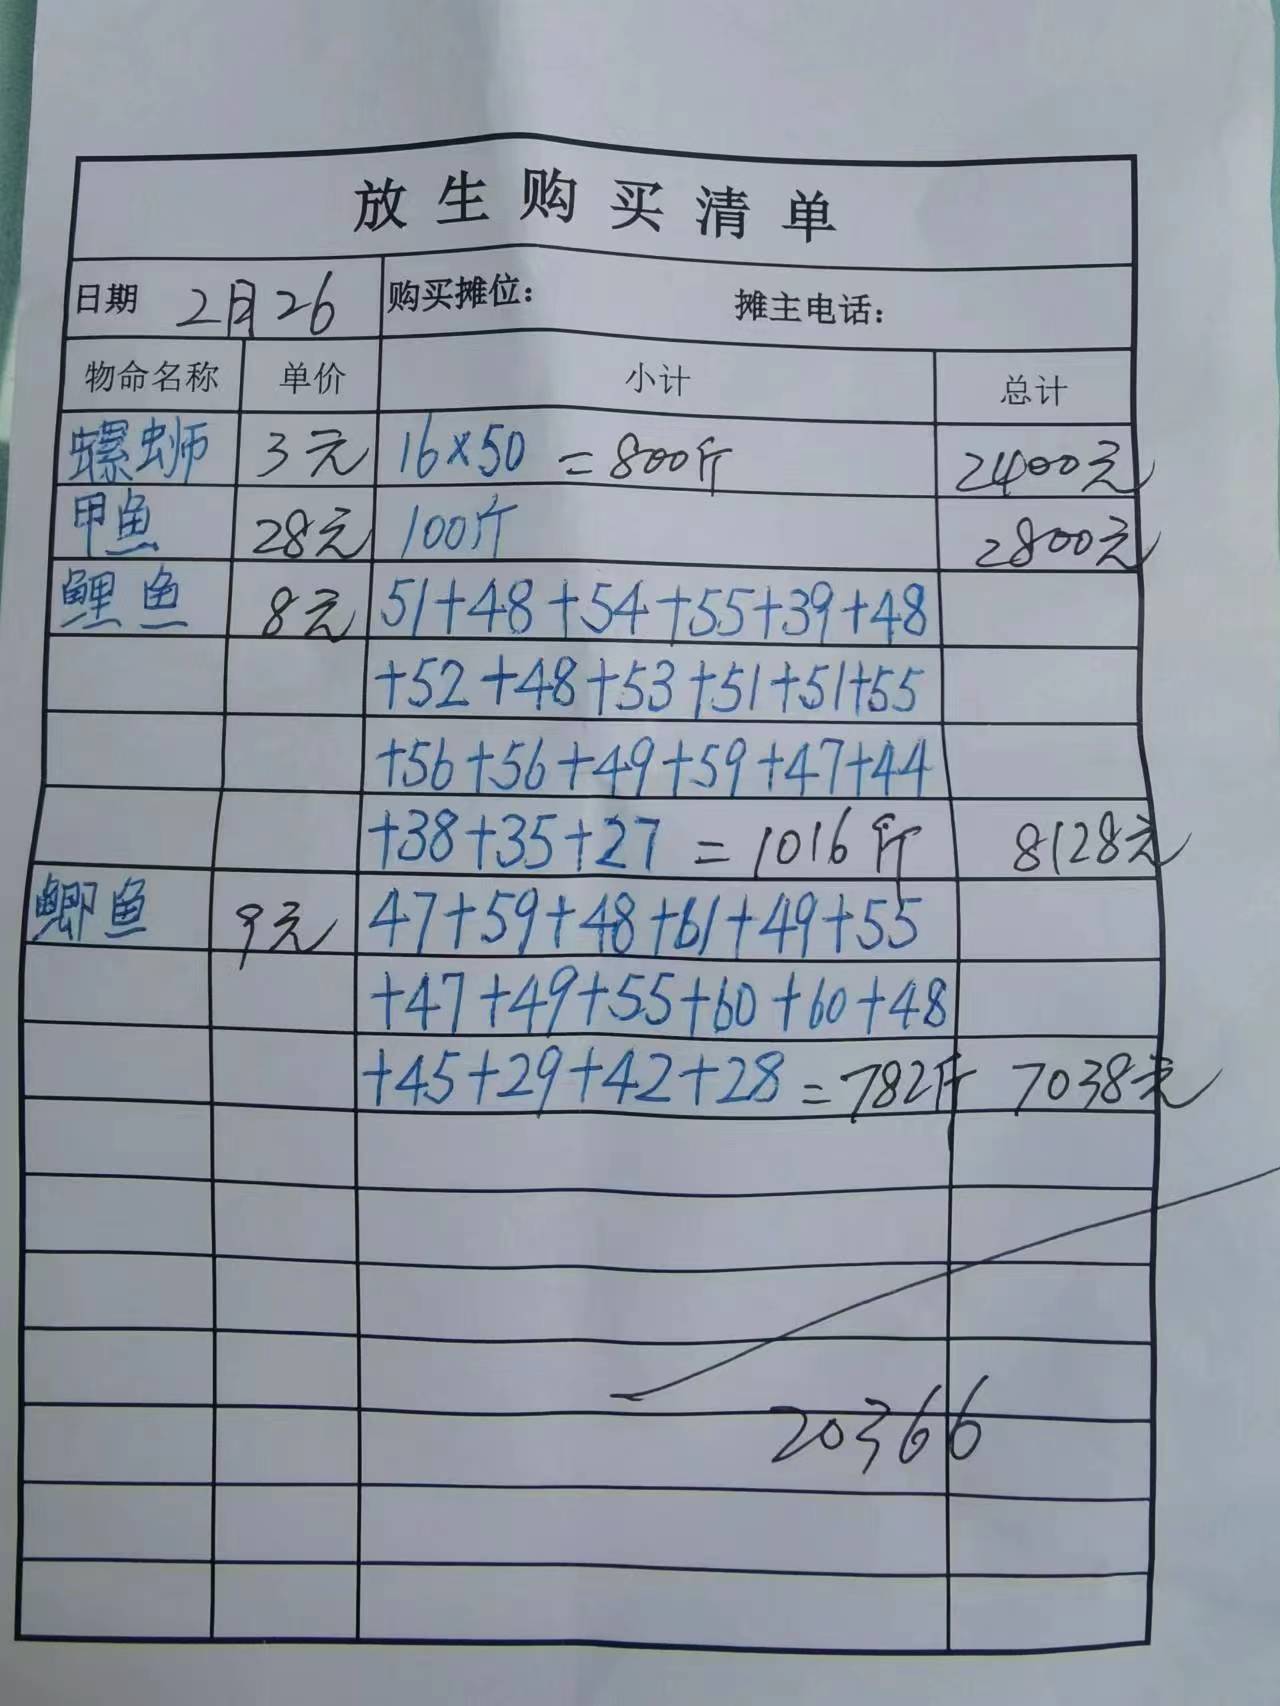 放生购买清单
日期 2月26 购买摊位： 摊主电话：
物命名称 单价 小计 总计
螺蛳 3元 16×50 =800斤 2400元
甲鱼 28元 100斤 2800元
鲤鱼 8元 51+48+54+55+39+48
+52+48+53+51+51+55
+56+56+49+59+47+44
+38+35+27 =1016斤 8128元
鲫鱼 9元 47+59+48+61+49+55
+47+49+55+60+60+48
+45+29+42+28 =782斤 7038元
20366